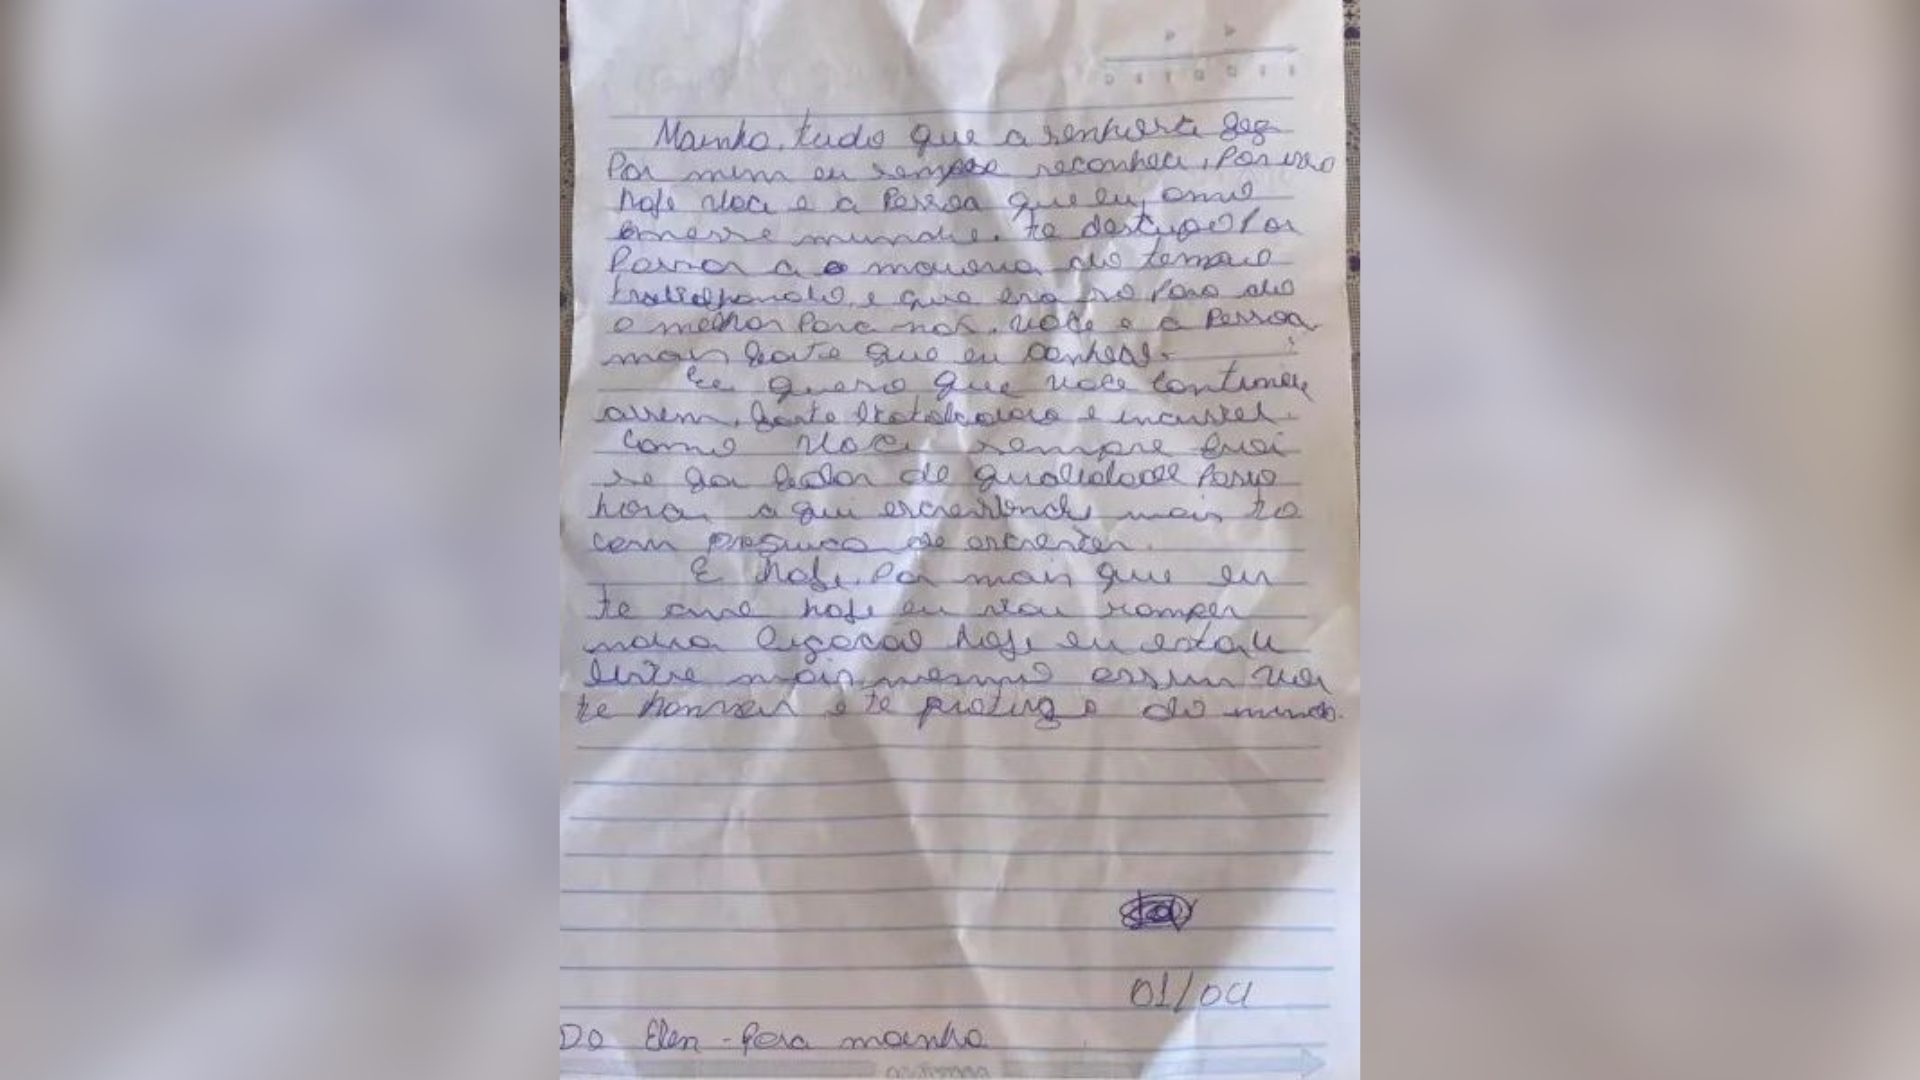 D S T Q Q S S
Mainha, tudo que a senhora fez
Por mim eu sempre reconheci, Por isso
hoje voce e a Pessoa que eu amo
nesse mundo. te
Passar a o maioria do tempo
trabalhando, e que era so Para da
o melhor Para nos. voce e a Pessoa
mais forte que eu conheço.
Eu quero que voce continue
assim, forte e
como voce sempre foi
se for falar de qualidade Passo
horas aqui escrevendo mais to
com preguiça de escrever.
E hoje, Por mais que eu
te ame hoje eu vou romper
nossa ligacao hoje eu estou
triste mais mesmo assim vou
te honrar e te proteger do mundo.
01/04
Do Elen - Para mainha